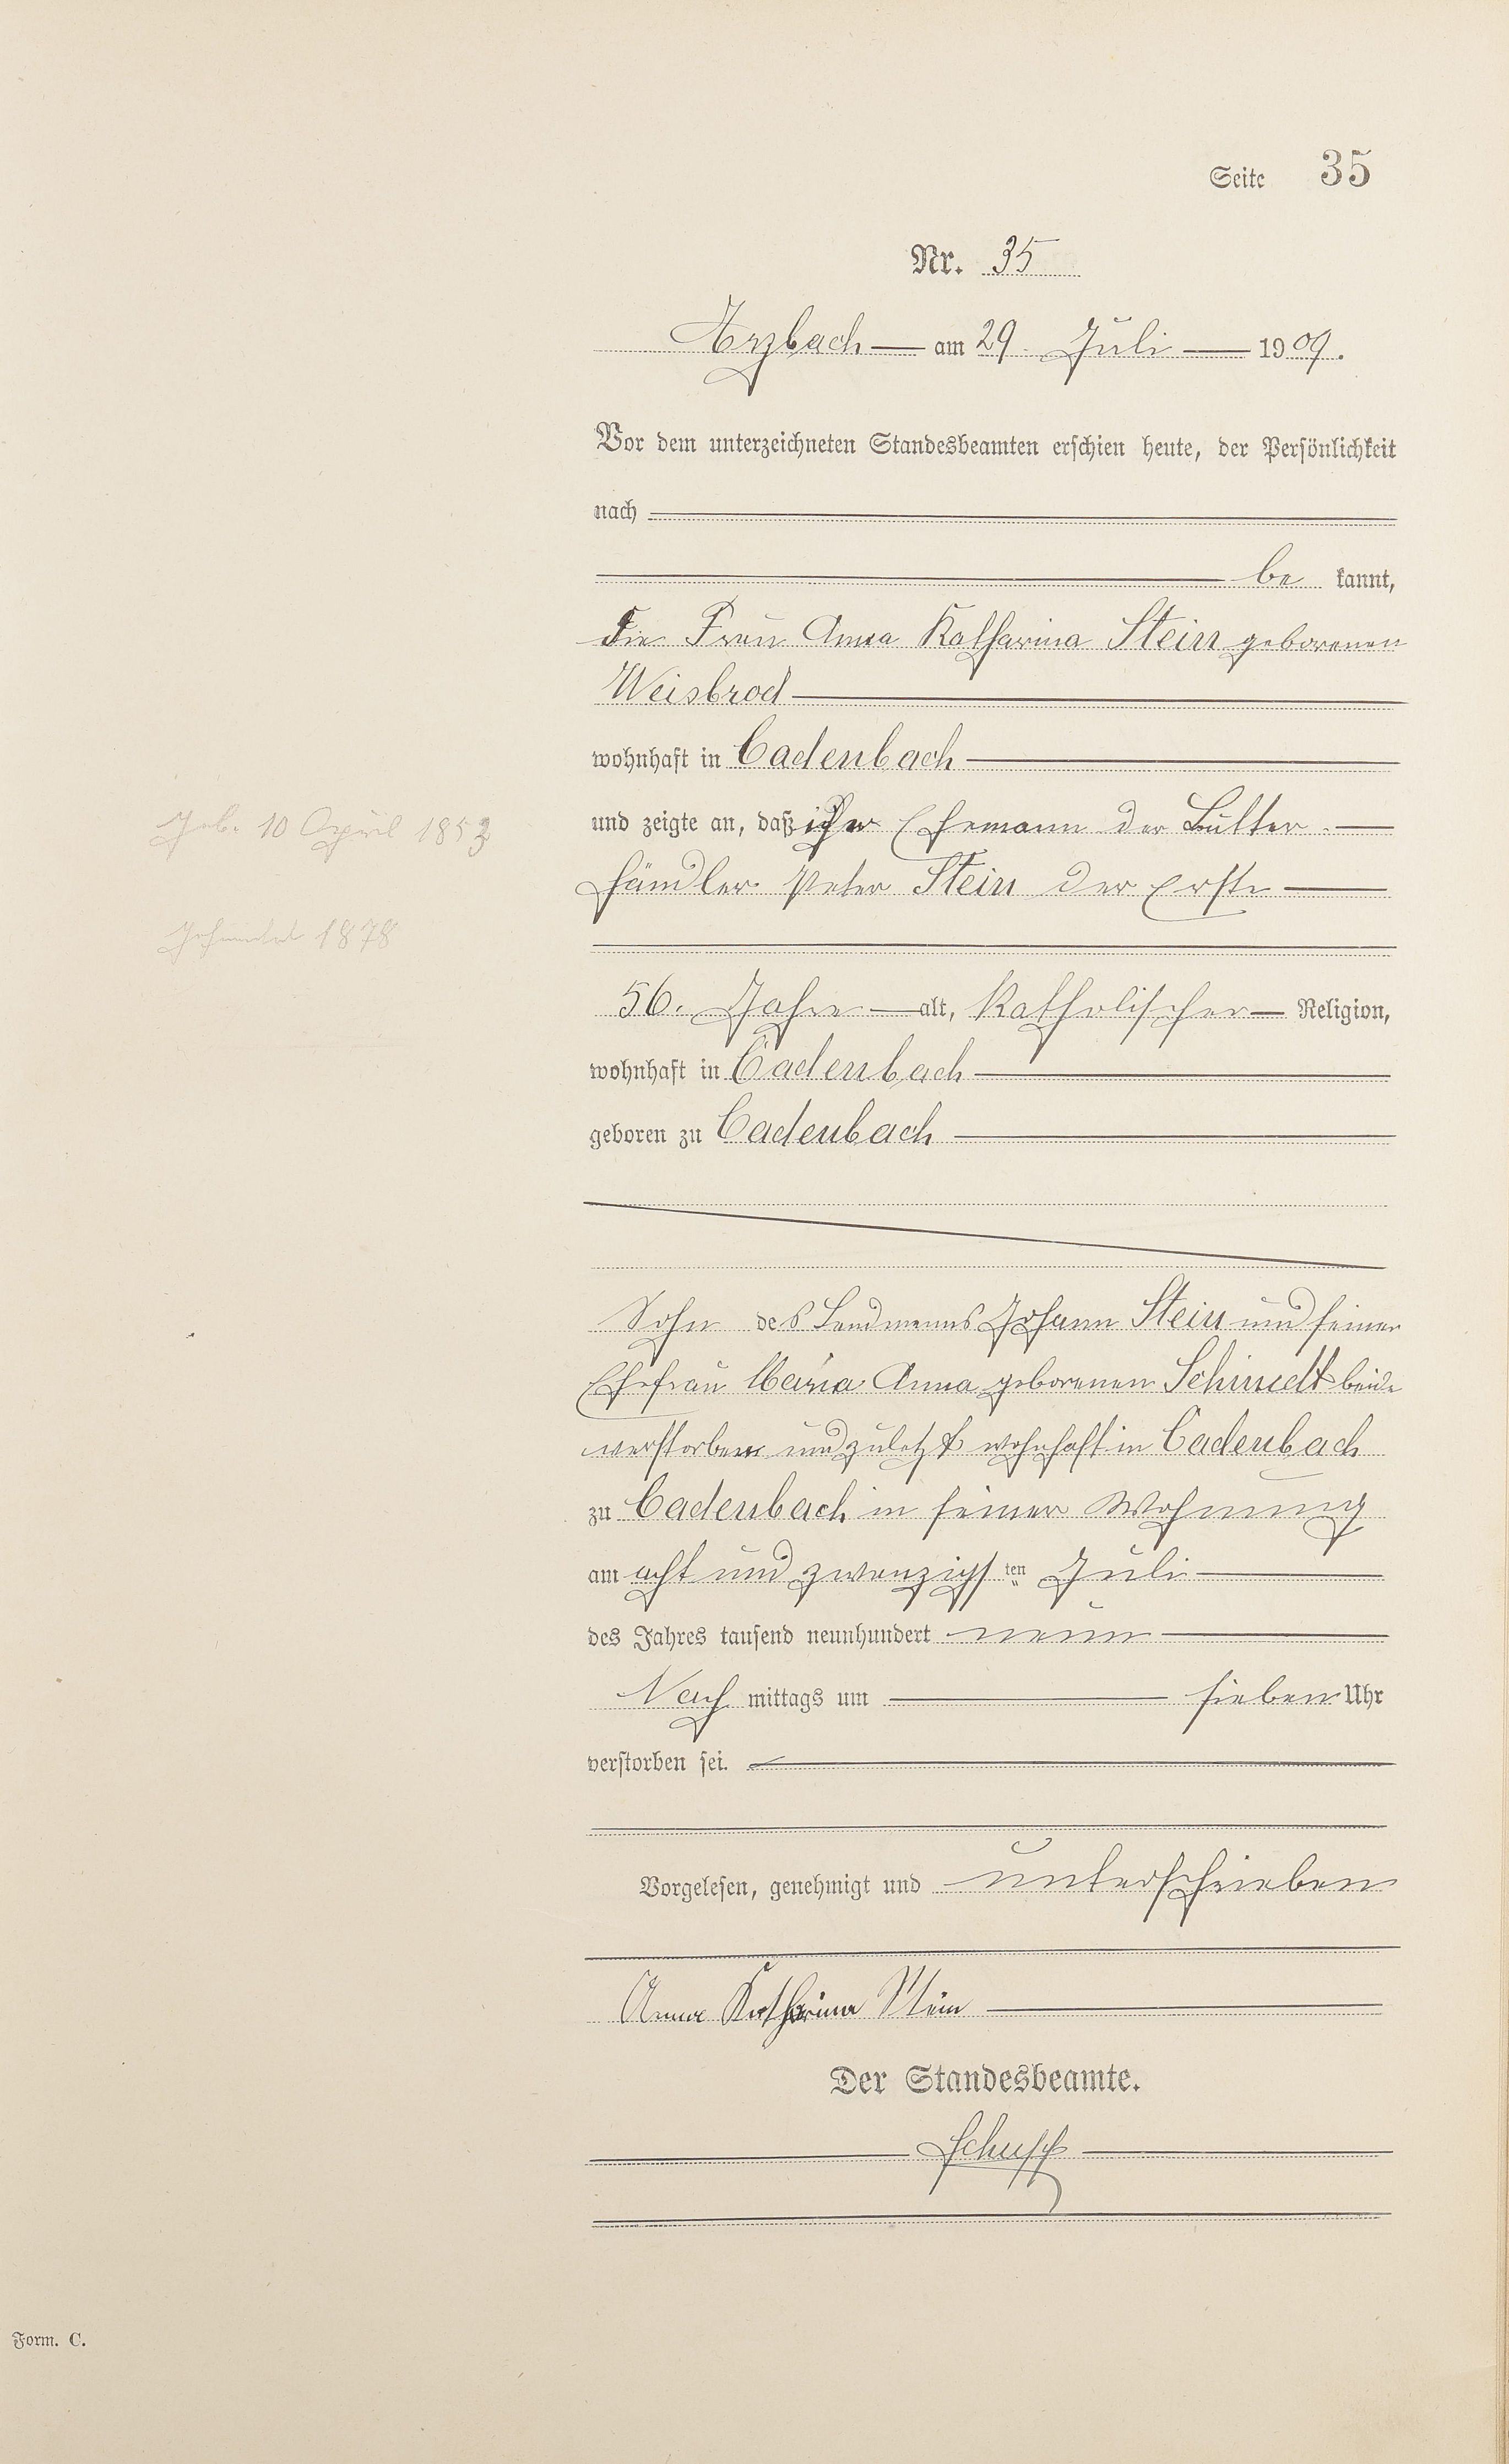 Seite 35
Nr. 35
Arzbach am 29. Juli 1909.
Vor dem unterzeichneten Standesbeamten erschien heute, der Persönlichkeit
nach
be kannt,
die Frau Anna Katharina Stein geborenen
Weisbrod
wohnhaft in Cadenbach
und zeigte an, daß ihr Ehemann der Butter
händler Peter Stein der Erste
Geb. 10 April 1853
Geheiratet 1878
56. Jahre alt, katholischer Religion,
wohnhaft in Cadenbach
geboren zu Cadenbach
Sohn des Landmanns Johann Stein und seiner
Ehefrau Maria Anna geborenen Schmidt beide
verstorben und zuletzt wohnhaft in Cadenbach
zu Cadenbach in seiner Wohnung
am acht und zwanzigsten Juli
des Jahres tausend neunhundert neun
Nach mittags um sieben Uhr
verstorben sei.
Vorgelesen, genehmigt und unterschrieben
Anna Katharina Stein
Der Standesbeamte.
Schupp
Form. C.